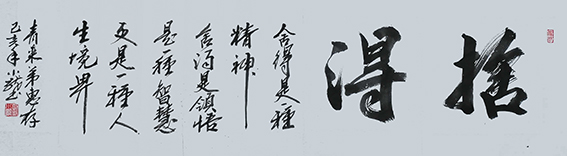 捨得
舍得是一種
精神
舍得是領悟
是一種智慧
更是一種人
生境界
青來弟惠存
己亥年